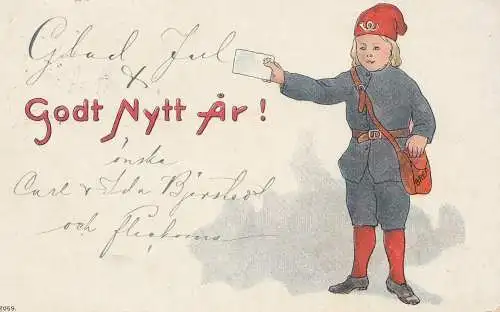 Glad Jul
&
Godt Nytt År!
önska
Carl & Ida
och
2059.